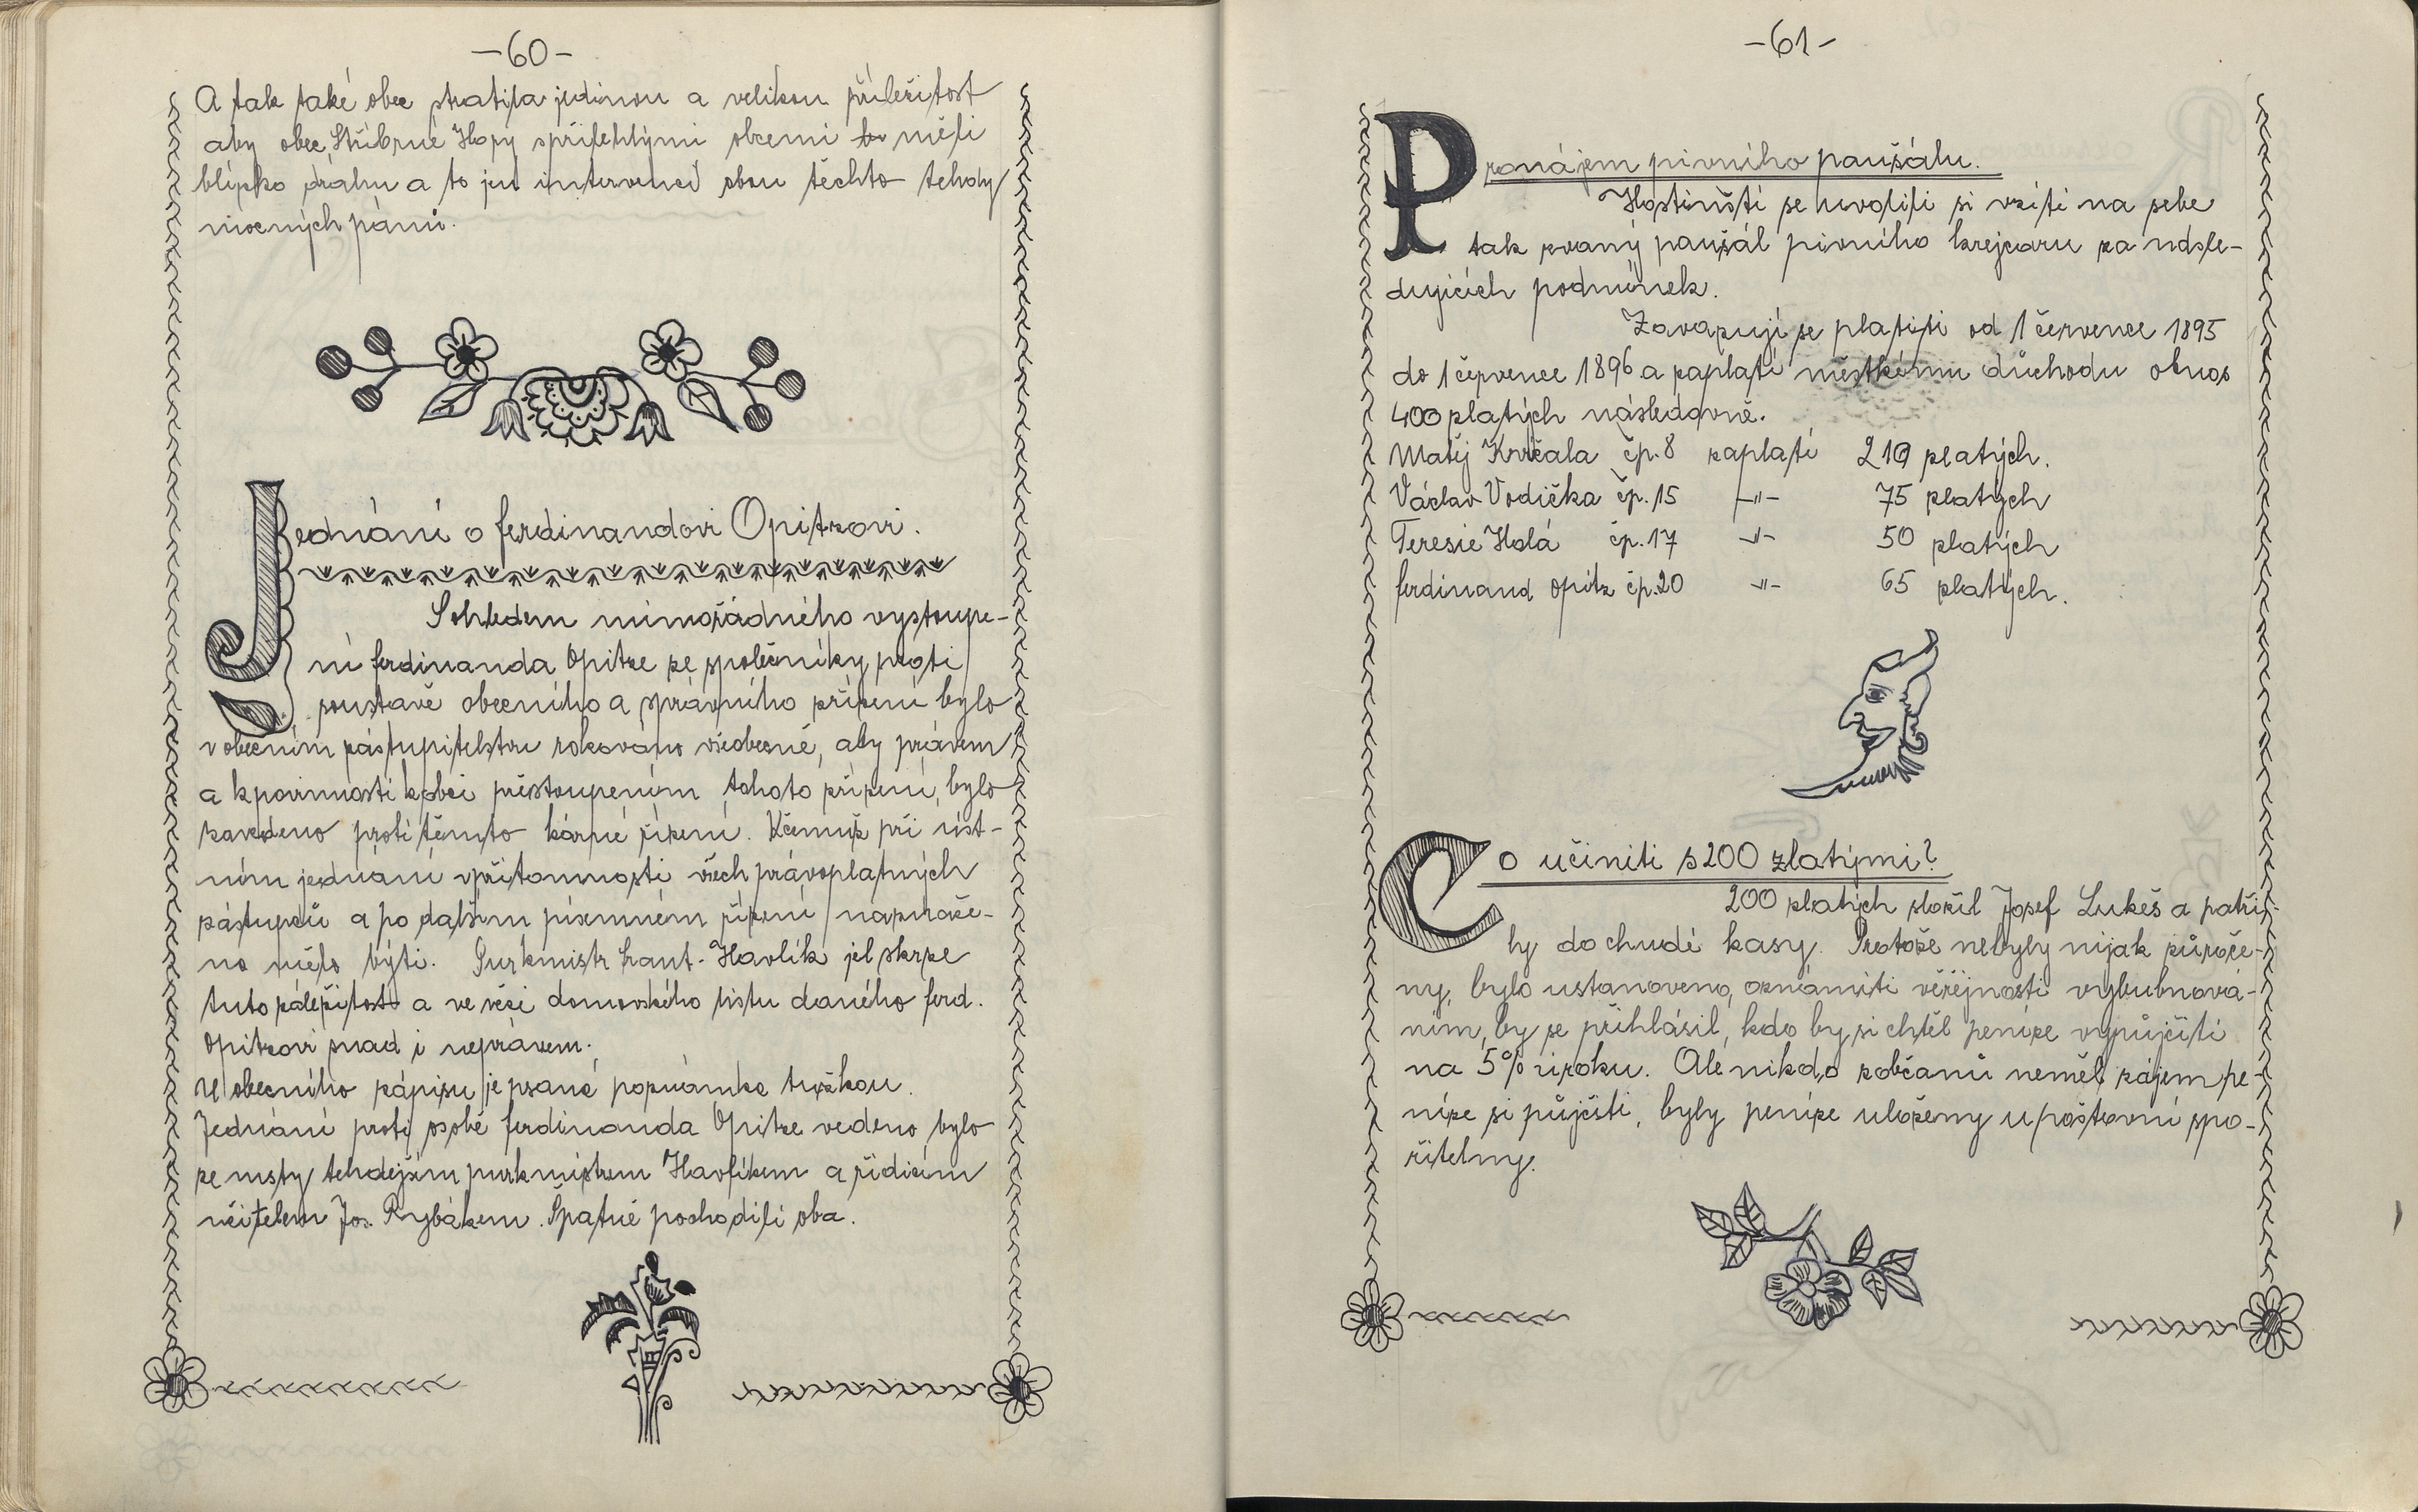 -60-
A tak také obec ztratila jedinou a velikou příležitost
aby obec Stříbrné Hory spřilehlými obcemi měli
blízko dráhu a to jen intervencí obou těchto tehdy
mocných pánů.
Jednání o ferdinandovi Opitzovi.
Sohledem mimořádného vystoupe-
ní ferdinanda Opitze se společníky proti
soustavě obecního a správního zřízení bylo
v obecním zástupitelstvu rokováno všeobecně, aby právem
a k povinnosti k obci přestoupením tohoto zřízení, bylo
zavedeno proti těmto kárné řízení. Kčemuž při úst-
ním jednání vpřítomnosti všech právoplatných
zástupců a po dalším písemném řízení napraže-
no mělo býti. Purkmistr Frant. Havlík jel skrze
tuto záležitost a ve věci domovského listu daného ferd.
Opitzovi snad i neprávem.
U obecního zápisu je psané poznámka tužkou.
Jednání proti osobě ferdinanda Opitze vedeno bylo
ze msty tehdejším purkmistrem Havlíkem a řídícím
učitelem Jos. Rybákem. Špatně pochodili oba.
-61-
Pronájem pivního paušálu.
Hostinští se uvolili si vzíti na sebe
tak zvaný paušál pivního krejcaru za násle-
dujících podmínek.
Zavazují se platiti od 1 července 1895
do 1 července 1896 a zaplatí městkému důchodu obnos
400 zlatých následovně.
Matěj Krčala čp. 8 zaplatí 210 zlatých.
Václav Vodička čp. 15 -"- 75 zlatých
Teresie Holá čp. 17 -"- 50 zlatých
ferdinand Opitz čp. 20 -"- 65 zlatých.
Co učiniti s 200 zlatými?
200 zlatých složil Josef Lukeš a patři-
ly do chudé kasy. Protože nebyly nijak zúroče-
ny, bylo ustanoveno, oznámiti veřejnosti vybubnová-
ním, by se přihlásil, kdo by si chtěl peníze vypůjčiti
na 5% úroku. Ale nikdo zobčanů neměl zájem pe-
níze si půjčiti, byly peníze uloženy u poštovní spo-
řitelny.